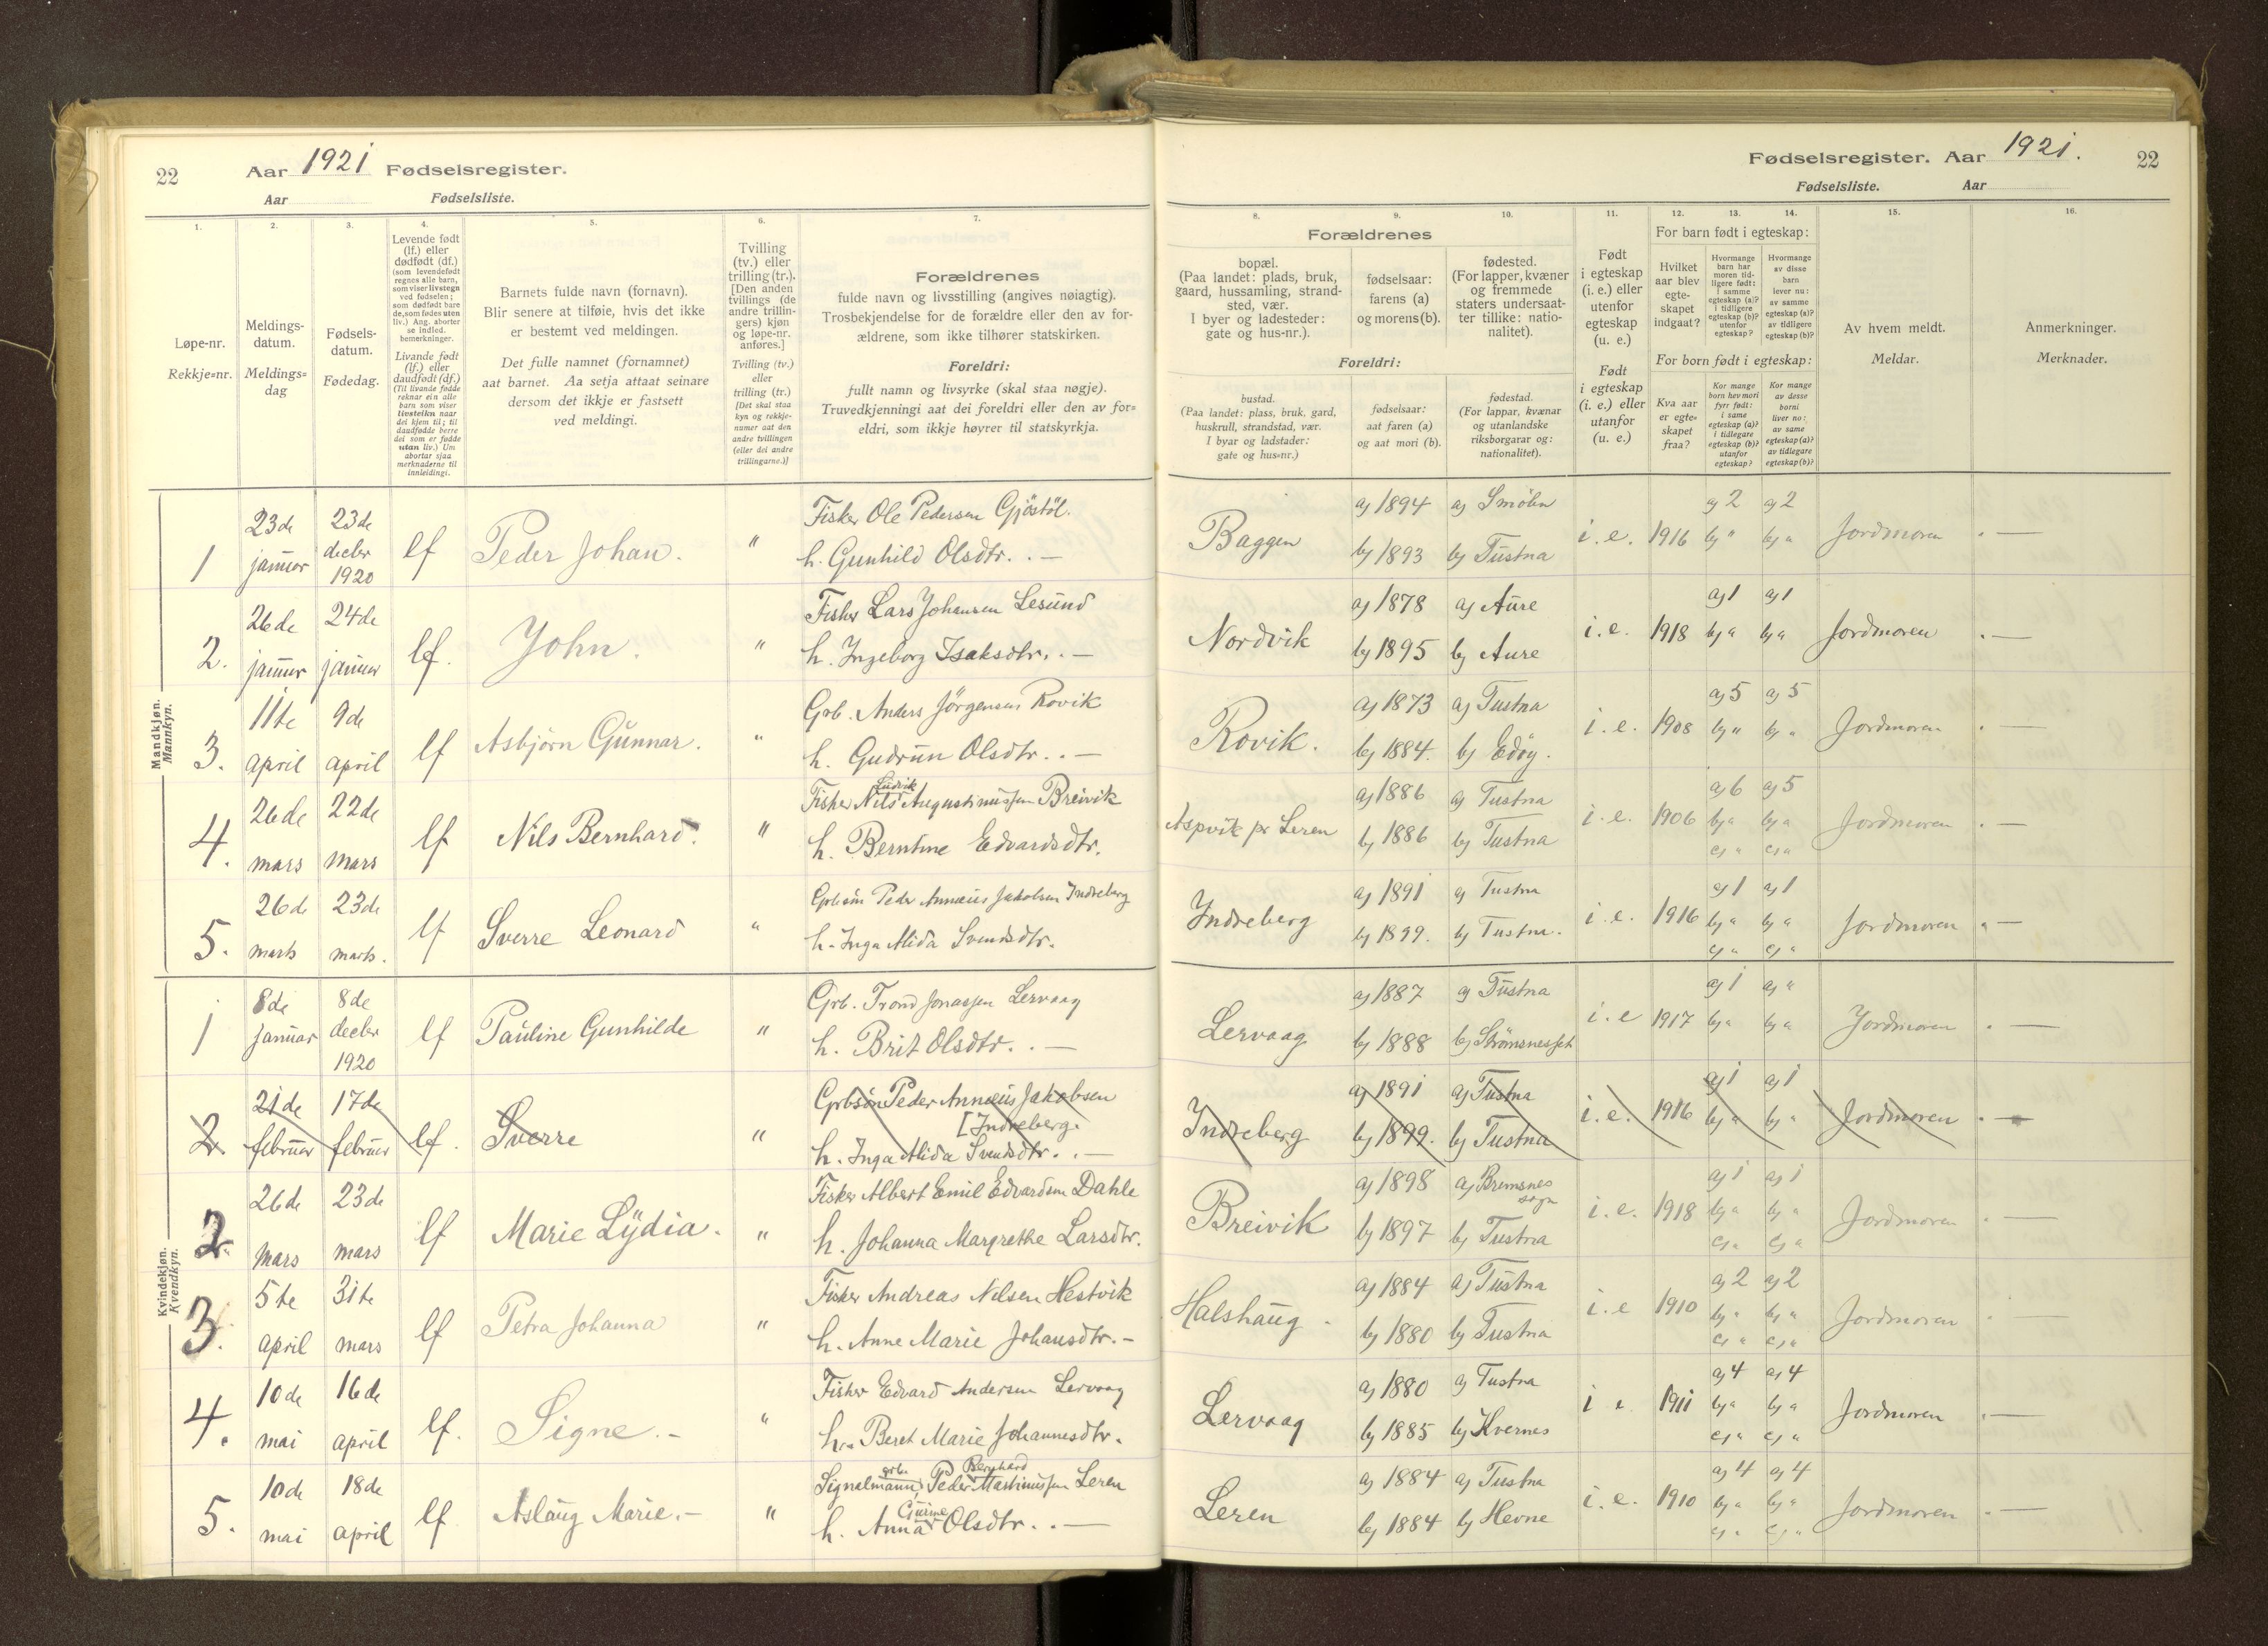 22 Aar 1921 Fødselsregister.
Aar Fødselsliste.
1. 2. 3. 4. 5. 6. 7.
Løpe-nr.
Rekkje=nr.
Meldings-
datum.
Meldings=
dag
Fødsels-
datum.
Fødedag.
Levende født
(lf.) eller
dødfødt (df.)
(som levendefødt
regnes alle barn,
som viser livstegn
ved fødselen;
som dødfødt bare
de, som fødes uten
liv.) Ang. aborter
se indled.
bemerkninger.
Livande født
(lf.) eller
daudfødt (df.)
(Til livande fødde
reknar ein alle
barn som viser
livsteikn naar
dei kjem til; til
daudfødde berre
dei som er fødde
utan liv.) Um
abortar sjaa
merknaderne til
innleidingi.
Barnets fulde navn (fornavn).
Blir senere at tilføie, hvis det ikke
er bestemt ved meldingen.
Det fulle namnet (fornamnet)
aat barnet. Aa setja attaat seinare
dersom det ikkje er fastsett
ved meldingi.
Tvilling
(tv.) eller
trilling (tr.).
[Den anden
tvillings (de
andre trillin-
gers) kjøn
og løpe-nr.
anføres.]
Tvilling (tv.)
eller
trilling (tr.)
[Det skal staa
kyn og rekkje-
numer aat den
andre tvillingen
(eller dei andre
trillingarne.)]
Forældrenes
fulde navn og livsstilling (angives nøiagtig).
Trosbekjendelse for de forældre eller den av for-
ældrene, som ikke tilhører statskirken.
Foreldri:
fullt namn og livsyrke (skal staa nøgje).
Truvedkjenningi aat dei foreldri eller den av for=
eldri, som ikkje høyrer til statskyrkja.
Mandkjøn.
Mannkyn.
1 23de januar 23de decbr 1920 lf Peder Johan. " Fisker Ole Pedersen Gjöstöl.
h. Gunhild Olsdtr. . —
2. 26de januar 24de januar lf. John. " Fisker Lars Johansen Lesund
h. Ingeborg Isaksdtr. . —
3. 11te april 9de april lf Asbjörn Gunnar. " Grb. Anders Jörgensen Rovik
h. Gudrun Olsdtr. . —
4. 26de mars 22de mars lf Nils Bernhard. " Fisker Nils Ludvik Augustinussen Breivik
h. Berntine Edvardsdtr.
5. 26de marts 23de marts. lf Sverre Leonard " Grbsön Peder Annæus Jakobsen Indreberg
h. Inga Alida Svendsdtr.
Kvindekjøn.
Kvendkyn.
1 8de januar 8de decbr 1920 lf Pauline Gunhilde " Grb. Trond Jonassen Lervaag
h. Brit Olsdtr. . —
2 21de februar 17de februar lf. Sverre " Grbsön Peder Annæus Jakobsen
[Indreberg.
h. Inga Alida Svendsdtr. . —
2. 26de mars 23de mars lf Marie Lydia. " Fisker Albert Emil Edvardsen Dahle
h. Johanna Margrethe Larsdtr.
3. 5te april 31te mars lf Petra Johanna " Fisker Andreas Nilsen Hestvik
h. Anne Marie Johansdtr. —
4. 10de mai 16de april lf. Signe. — " Fisker Edvard Andersen Lervaag
h. Beret Marie Johannesdtr.
5. 10de mai 18de april lf Aslaug Marie. — " Signalmann, grb. Peder Bernhard Martinussen Leren
h. Anna Gurine Olsdtr. . —
Fødselsregister. Aar 1921. 22
Fødselsliste. Aar
8. 9. 10. 11. 12. 13. 14. 15. 16.
Forældrenes
bopæl.
(Paa landet: plads, bruk,
gaard, hussamling, strand-
sted, vær.
I byer og ladesteder:
gate og hus-nr.).
fødselsaar:
farens (a)
og morens (b).
fødested.
(For lapper, kvæner
og fremmede
staters undersaat-
ter tillike: natio-
nalitet).
Foreldri:
bustad.
(Paa landet: plass, bruk, gard,
huskrull, strandstad, vær.
I byar og ladstader:
gate og hus=nr.)
fødselsaar:
aat faren (a)
og aat mori (b).
fødestad.
(For lappar, kvænar
og utanlandske
riksborgarar og:
nationalitet).
Født
i egteskap
(i. e.) eller
utenfor
egteskap
(u. e.)
Født
i egteskap
(i. e.) eller
utanfor
(u. e.)
For barn født i egteskap:
Hvilket
aar blev
egte-
skapet
indgaat?
Hvormange
barn har
moren tid-
ligere født:
i samme
egteskap (a)?
i tidligere
egteskap (b)?
utenfor
egteskap?
Hvormange
av disse
barn
lever nu:
av samme
egteskap (a)?
av tidligere
egteskap (b)?
For born født i egteskap:
Kva aar
er egte=
skapet
fraa?
Kor mange
born hev mori
fyrr født:
i same
egteskap (a)?
i tidlegare
egteskap (b)?
utanfor
egteskap?
Kor mange
av desse
borni
liver no:
av same
egteskap (a)?
av tidlegare
egteskap (b)?
Av hvem meldt.
Meldar.
Anmerkninger.
Merknader.
Baggen a) 1894 a) Smölen i. e. 1916 a) 2 a) 2 Jordmoren . —
b) 1893 b) Tustna b) " b) "
Nordvik a) 1878 a) Aure i. e. 1918 a) 1 a) 1 Jordmoren . —
b) 1895 b) Aure b) " b) "
Rovik. a) 1873 a) Tustna i. e. 1908 a) 5 a) 5 Jordmoren . —
b) 1884. b) Edöy. b) " b) "
Aspvik pr Leren a) 1886 a) Tustna i. e. 1906 a) 6 a) 5 Jordmoren . —
b) 1886 b) Tustna b) " b) "
c) " c) "
Indreberg a) 1891 a) Tustna i. e. 1916 a) 1 a) 1 Jordmoren . —
b) 1899. b) Tustna. b) " b) "
c) " c) "
Lervaag a) 1887 a) Tustna i. e 1917 a) 1 a) " Jordmoren . —
b) 1888 b) Strömsneset b) " b) "
Indreberg a) 1891 a) Tustna i. e. 1916 a) 1 a) 1 Jordmoren . —
b) 1899. b) Tustna b) " b) "
Breivik a) 1898 a) Bremsnes sogn i. e. 1918 a) 1 a) 1 Jordmoren . —
b) 1897 b) Tustna b) " b) "
c) " c) "
Halshaug a) 1884 a) Tustna i. e 1910 a) 2 a) 2 Jordmoren . —
b) 1880 b) Tustna b) " b) "
c) " c) "
Lervaag a) 1880 a) Tustna i e. 1911 a) 4 a) 4 Jordmoren . —
b) 1885 b) Kvernes b) " b) "
c) " c) "
Leren a) 1884 a) Tustna i. e. 1910 a) 4 a) 4 Jordmoren . —
b) 1884 b) Hevne b) " b) "
c) " c) "